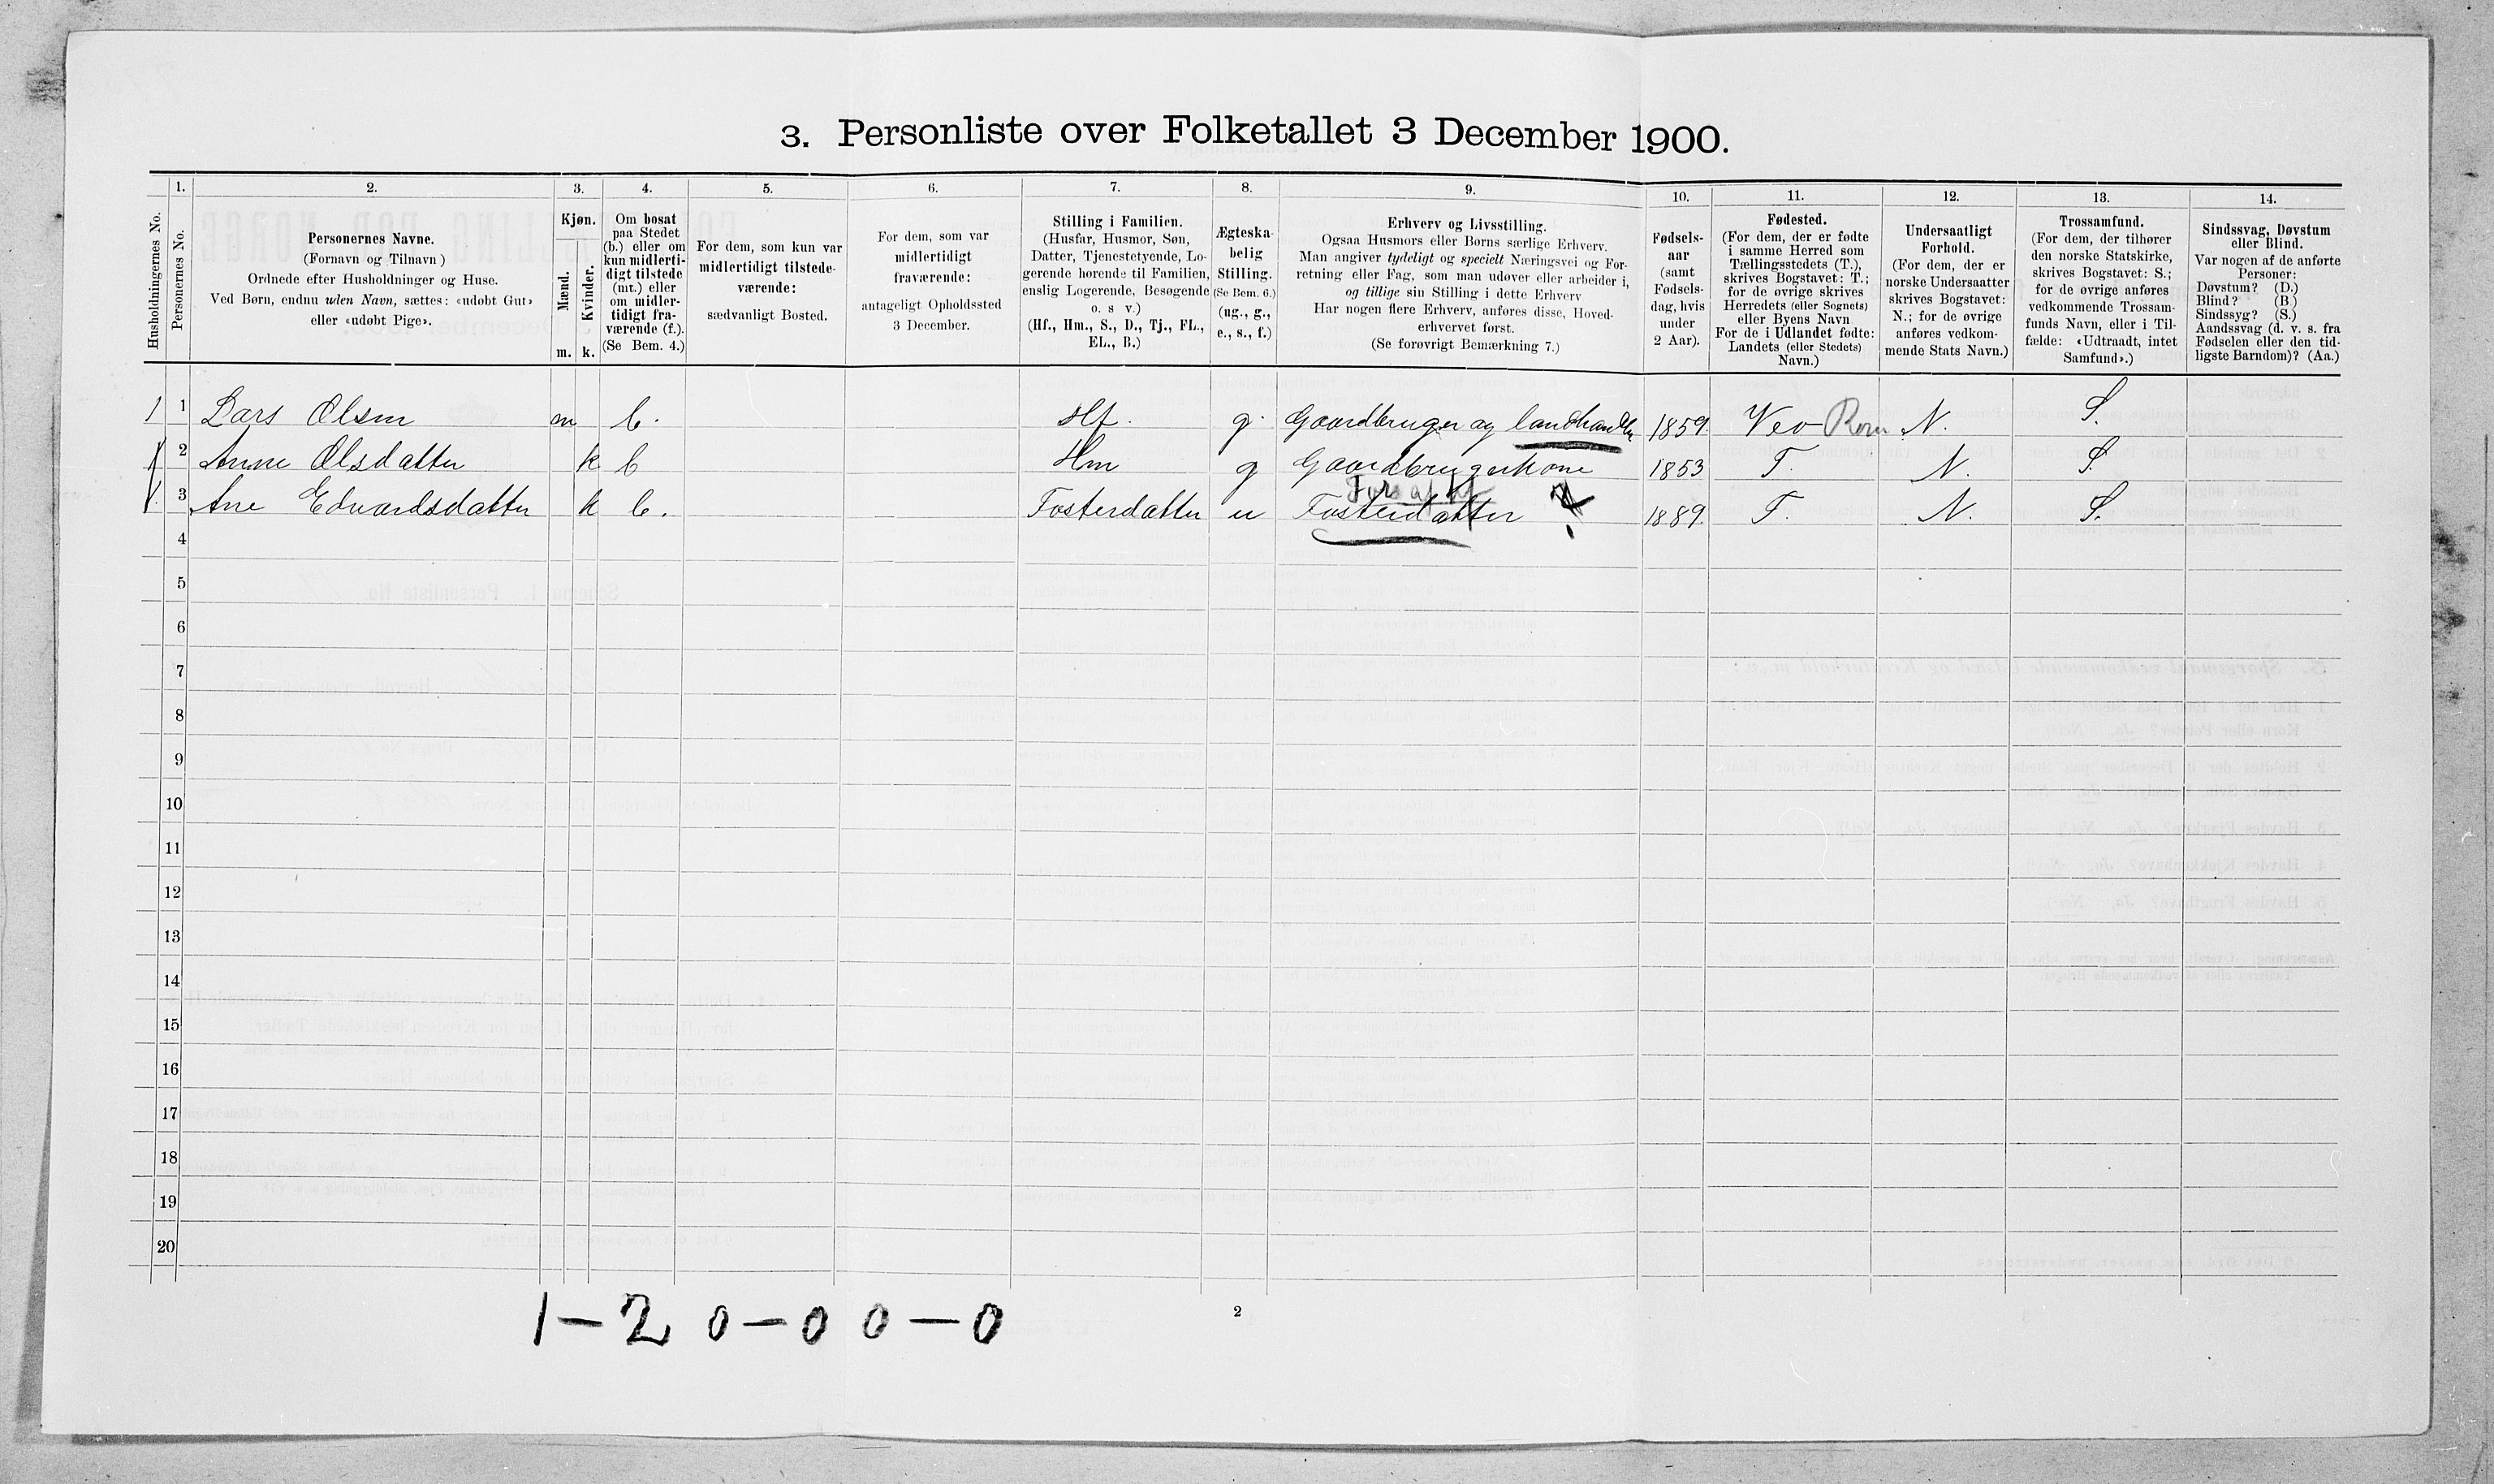 3. Personliste over Folketallet 3 December 1900.
Husholdningernes No.
1.
Personernes No.
2.
Personernes Navne.
(Fornavn og Tilnavn)
Ordnede efter Husholdninger og Huse.
Ved Børn, endnu uden Navn, sættes: «udøbt Gut»
eller «udøbt Pige».
3.
Kjøn.
Mænd.
Kvinder.
m. k.
4.
Om bosat
paa Stedet
(b.) eller om
kun midlerti-
digt tilstede
(mt.) eller
om midler-
tidigt fra-
værende (f.).
(Se Bem. 4.)
5.
For dem, som kun var
midlertidigt tilstede-
værende:
sædvanligt Bosted.
6.
For dem, som var
midlertidigt
fraværende:
antageligt Opholdssted
3 December.
7.
Stilling i Familien.
(Husfar, Husmor, Søn,
Datter, Tjenestetyende, Lo-
gerende hørende til Familien,
enslig Logerende, Besøgende
o. s v.)
(Hf., Hm., S., D., Tj., FL.,
EL., B.)
8.
Ægteska-
belig
Stilling.
(Se Bem. 6.)
(ug., g.,
e., s., f.)
9.
Erhverv og Livsstilling.
Ogsaa Husmors eller Børns særlige Erhverv.
Man angiver tydeligt og specielt Næringsvei og For-
retning eller Fag, som man udøver eller arbeider i,
og tillige sin Stilling i dette Erhverv
Har nogen flere Erhverv, anføres disse, Hoved-
erhvervet først.
(Se forøvrigt Bemærkning 7.)
10.
Fødsels-
aar
(samt
Fødsels-
dag, hvis
under
2 Aar).
11.
Fødested.
(For dem, der er fødte
i samme Herred som
Tællingsstedets (T.),
skrives Bogstavet: T.;
for de øvrige skrives
Herredets (eller Sognets)
eller Byens Navn
For de i Udlandet fødte:
Landets (eller Stedets)
Navn.)
12.
Undersaatligt
Forhold.
(For dem, der er
norske Undersaatter
skrives Bogstavet:
N.; for de øvrige
anføres vedkom-
mende Stats Navn.)
13.
Trossamfund.
(For dem, der tilhører
den norske Statskirke,
skrives Bogstavet: S.;
for de øvrige anføres
vedkommende Trossam-
funds Navn, eller i Til-
fælde: «Udtraadt, intet
Samfund».)
14.
Sindssvag, Døvstum
eller Blind.
Var nogen af de anførte
Personer:
Døvstum? (D.)
Blind? (B)
Sindssyg? (S.)
Aandssvag (d. v. s. fra
Fødselen eller den tid-
ligste Barndom)? (Aa.)
1 1 Lars Olsen m b. Hf. g. Gaardbruger og landhandler 1859 Veø Rom N. S.
2 Anne Olsdatter k b Hm g Gaardbrugerkone 1853 T. N. S.
Fors af Hf
3 Ane Edvardsdatter k b. Fosterdatter u Fosterdatter 1889. T. N. S.
4
5
6
7
8
9
10
11
12
13
14
15
16
17
18
19
20
1-2 0-0 0-0
2